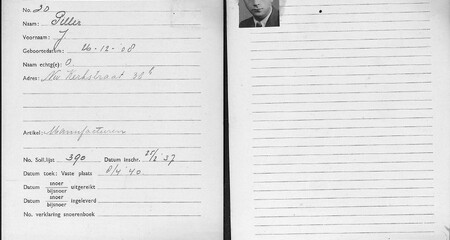 No. 20
Naam: Peller
Voornaam: J
Geboortedatum: 26-12-'08
Naam echtg(e): 0
Adres: Nw Kerkstraat 38
Artikel: Manufacturen
No. Soll.lijst 390 Datum inschr. 25/2 37
Datum toek: Vaste plaats 8/4 '40
Datum snoer/bijsnoer uitgereikt
Datum snoer/bijsnoer ingeleverd
No. verklaring snoerenboek